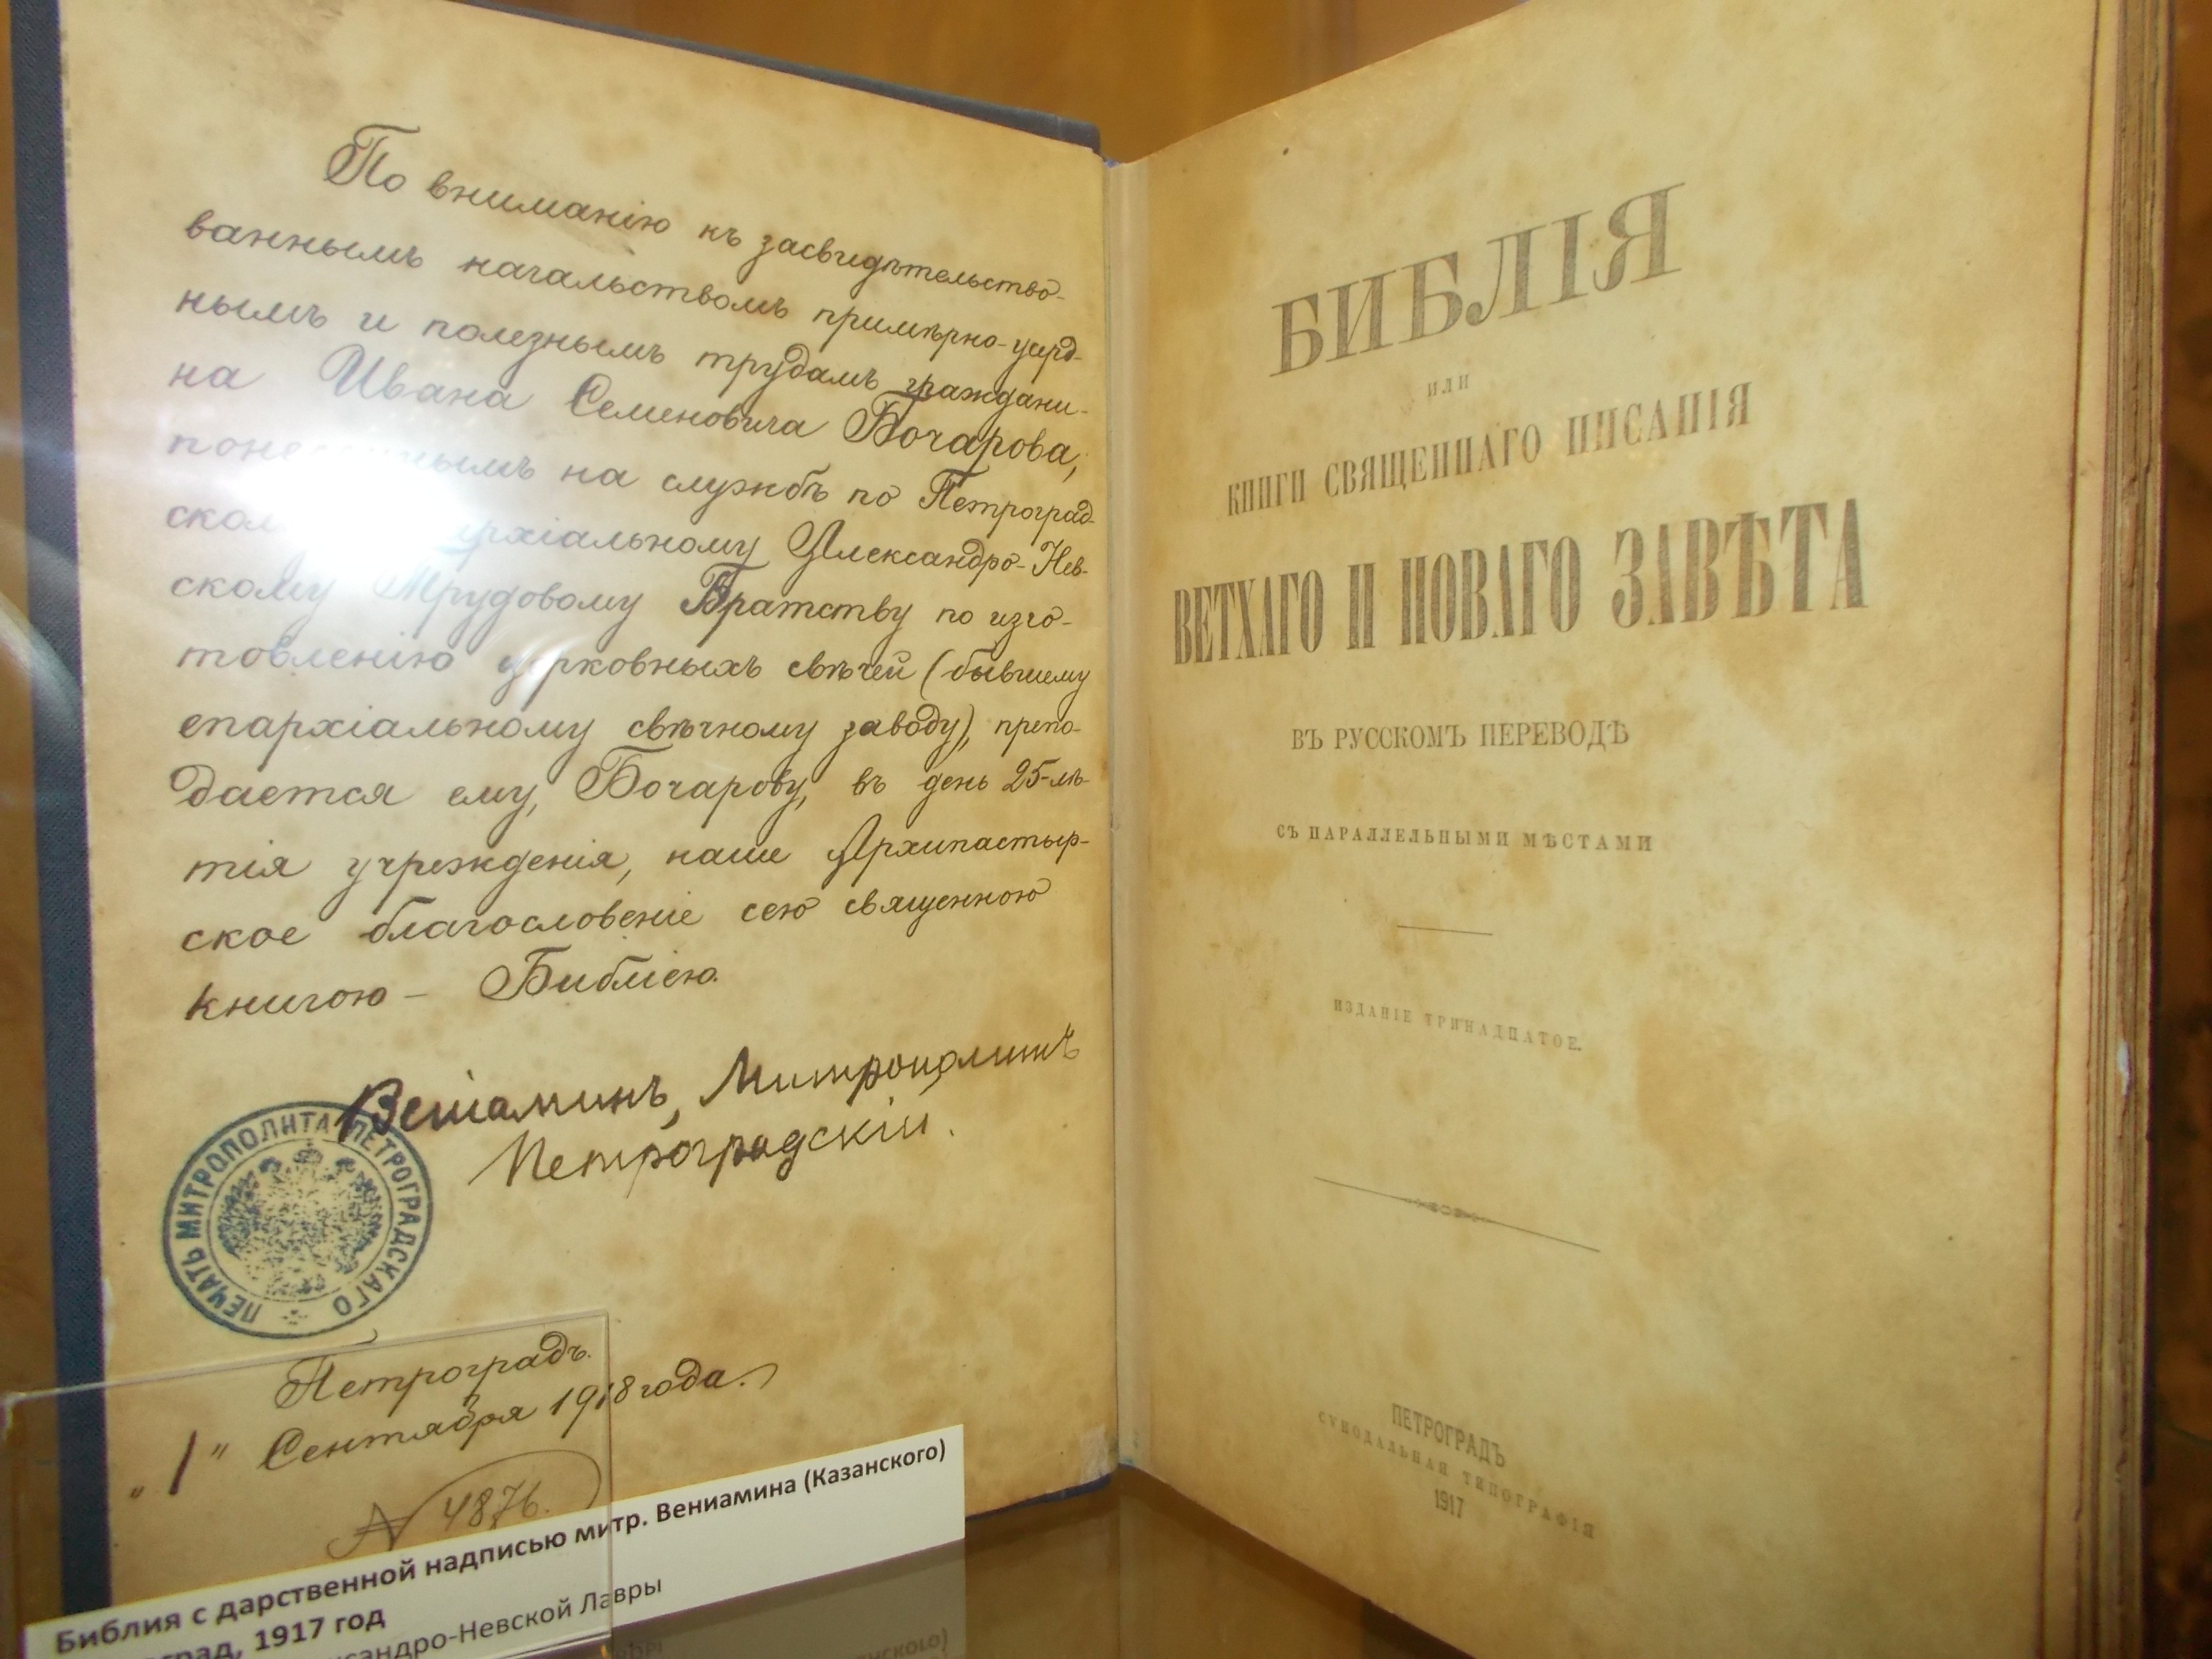 По вниманію къ засвидѣтельство-
ваннымъ начальствомъ примѣрно-усерд-
нымъ и полезнымъ трудамъ граждани-
на Ивана Семеновича Бочарова,
на службѣ по Петроград-
Александро-Нев-
скому Трудовому Братству по изго-
товленію церковныхъ свѣчей (бывшему
епархіальному свѣчному заводу), препо-
дается ему, Бочарову, въ день 25-лѣ-
тія учрежденія, наше Архипастыр-
ское благословеніе сею священною
книгою – Библіею.
Веніаминъ, Митрополитъ
Петроградскій.
ПЕЧАТЬ МИТРОПОЛИТА ПЕТРОГРАДСКАГО
Петроградъ.
„1" Сентября 1918 года.
№ 4876.
Библия с дарственной надписью митр. Вениамина (Казанского)
1917 год
Лавры
БИБЛІЯ
ИЛИ
КНИГИ СВЯЩЕННАГО ПИСАНІЯ
ВЕТХАГО И НОВАГО ЗАВѢТА
ВЪ РУССКОМЪ ПЕРЕВОДѢ
СЪ ПАРАЛЛЕЛЬНЫМИ МѢСТАМИ
ИЗДАНІЕ ТРИНАДЦАТОЕ.
ПЕТРОГРАДЪ
СѴНОДАЛЬНАЯ ТИПОГРАФІЯ
1917